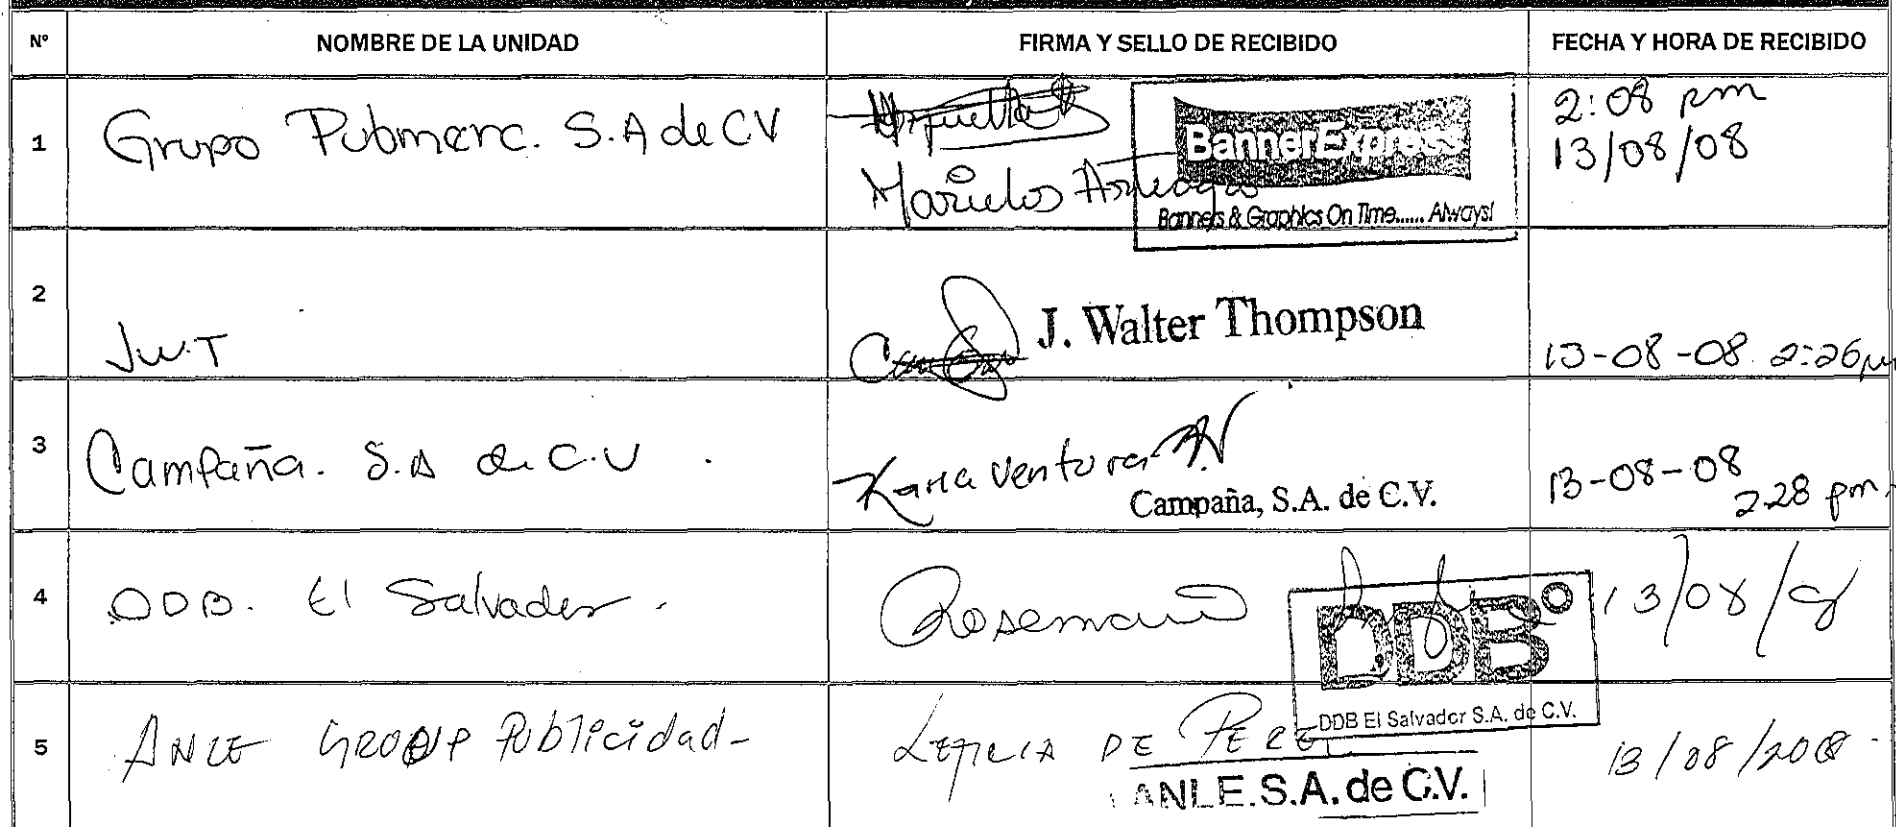 Nº NOMBRE DE LA UNIDAD FIRMA Y SELLO DE RECIBIDO FECHA Y HORA DE RECIBIDO
1 Grupo Pubmerc. S.A de CV
BannerExpress
Banners & Graphics On Time...... Always!
2:08 pm
13/08/08
2 J.W.T
J. Walter Thompson
13-08-08 2:26
3 Campaña. S.A de C.V.
Karla Ventura
Campaña, S.A. de C.V.
13-08-08
2:28 pm.
4 DDB. El Salvador.
Rosemarie
DDB
DDB El Salvador S.A. de C.V.
13/08/08
5 ANLE GROUP Publicidad-
LETICIA DE PEREZ
ANLE.S.A. de C.V.
13/08/2008